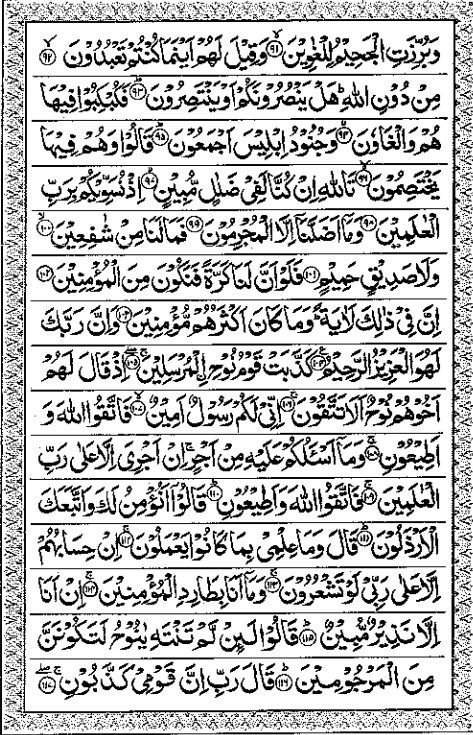 وَبُرِّزَتِ الْجَحِيْمُ لِلْغٰوِيْنَ ۙ﴿۹۱﴾ وَقِيْلَ لَهُمْ اَيْنَمَا كُنْتُمْ تَعْبُدُوْنَ ۙ﴿۹۲﴾
مِنْ دُوْنِ اللّٰهِ ؕ هَلْ يَنْصُرُوْنَكُمْ اَوْ يَنْتَصِرُوْنَ ؕ﴿۹۳﴾ فَكُبْكِبُوْا فِيْهَا
هُمْ وَالْغَاوٗنَ ۙ﴿۹۴﴾ وَجُنُوْدُ اِبْلِيْسَ اَجْمَعُوْنَ ؕ﴿۹۵﴾ قَالُوْا وَهُمْ فِيْهَا
يَخْتَصِمُوْنَ ۙ﴿۹۶﴾ تَاللّٰهِ اِنْ كُنَّا لَفِيْ ضَلٰلٍ مُّبِيْنٍ ۙ﴿۹۷﴾ اِذْ نُسَوِّيْكُمْ بِرَبِّ
الْعٰلَمِيْنَ ﴿۹۸﴾ وَمَاۤ اَضَلَّنَاۤ اِلَّا الْمُجْرِمُوْنَ ﴿۹۹﴾ فَمَا لَنَا مِنْ شٰفِعِيْنَ ۙ﴿۱۰۰﴾
وَلَا صَدِيْقٍ حَمِيْمٍ ﴿۱۰۱﴾ فَلَوْ اَنَّ لَنَا كَرَّةً فَنَكُوْنَ مِنَ الْمُؤْمِنِيْنَ ﴿۱۰۲﴾
اِنَّ فِيْ ذٰلِكَ لَاٰيَةً ؕ وَمَا كَانَ اَكْثَرُهُمْ مُّؤْمِنِيْنَ ﴿۱۰۳﴾ وَاِنَّ رَبَّكَ
لَهُوَ الْعَزِيْزُ الرَّحِيْمُ ﴿۱۰۴﴾ كَذَّبَتْ قَوْمُ نُوْحِ ۣالْمُرْسَلِيْنَ ۚۖ﴿۱۰۵﴾ اِذْ قَالَ لَهُمْ
اَخُوْهُمْ نُوْحٌ اَلَا تَتَّقُوْنَ ۚ﴿۱۰۶﴾ اِنِّيْ لَكُمْ رَسُوْلٌ اَمِيْنٌ ۙ﴿۱۰۷﴾ فَاتَّقُوا اللّٰهَ وَ
اَطِيْعُوْنِ ۚ﴿۱۰۸﴾ وَمَاۤ اَسْـَٔلُكُمْ عَلَيْهِ مِنْ اَجْرٍ ۚ اِنْ اَجْرِيَ اِلَّا عَلٰى رَبِّ
الْعٰلَمِيْنَ ۚ﴿۱۰۹﴾ فَاتَّقُوا اللّٰهَ وَاَطِيْعُوْنِ ؕ﴿۱۱۰﴾ قَالُوْۤا اَنُؤْمِنُ لَكَ وَاتَّبَعَكَ
الْاَرْذَلُوْنَ ؕ﴿۱۱۱﴾ قَالَ وَمَا عِلْمِيْ بِمَا كَانُوْا يَعْمَلُوْنَ ۚ﴿۱۱۲﴾ اِنْ حِسَابُهُمْ
اِلَّا عَلٰى رَبِّيْ لَوْ تَشْعُرُوْنَ ۚ﴿۱۱۳﴾ وَمَاۤ اَنَا بِطَارِدِ الْمُؤْمِنِيْنَ ۚ﴿۱۱۴﴾ اِنْ اَنَا
اِلَّا نَذِيْرٌ مُّبِيْنٌ ؕ﴿۱۱۵﴾ قَالُوْا لَىِٕنْ لَّمْ تَنْتَهِ يٰنُوْحُ لَتَكُوْنَنَّ
مِنَ الْمَرْجُوْمِيْنَ ؕ﴿۱۱۶﴾ قَالَ رَبِّ اِنَّ قَوْمِيْ كَذَّبُوْنِ ۚۖ﴿۱۱۷﴾